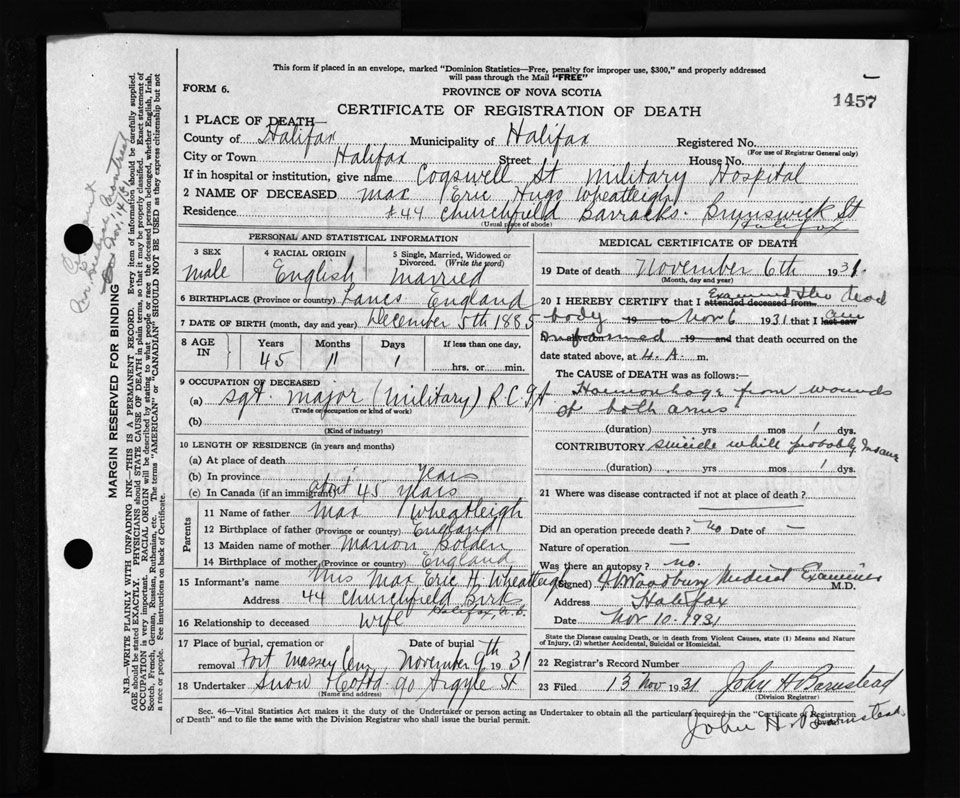 This form if placed in an envelope, marked "Dominion Statistics—Free, penalty for improper use, $300," and properly addressed
will pass through the Mail "FREE"
FORM 6.
PROVINCE OF NOVA SCOTIA
1457
CERTIFICATE OF REGISTRATION OF DEATH
1 PLACE OF DEATH—
County of Halifax Municipality of Halifax Registered No.
(For use of Registrar General only)
City or Town Halifax Street House No.
If in hospital or institution, give name Cogswell St Military Hospital
2 NAME OF DECEASED Max Eric Hugo Wheatleigh
Residence #44 Churchfield Barracks. Brunswick St
(Usual place of abode) Halifax
PERSONAL AND STATISTICAL INFORMATION
3 SEX 4 RACIAL ORIGIN 5 Single, Married, Widowed or
Divorced. (Write the word)
male English Married
6 BIRTHPLACE (Province or country) Lancs England
7 DATE OF BIRTH (month, day and year) December 5th 1885
8 AGE IN Years Months Days If less than one day,
45 11 1 hrs. or min.
9 OCCUPATION OF DECEASED
(a) Sgt. Major (Military) R.C.G.A
(Trade or occupation or kind of work)
(b)
(Kind of industry)
10 LENGTH OF RESIDENCE (in years and months)
(a) At place of death
(b) In province Years
(c) In Canada (if an immigrant) about 45 years
Parents
11 Name of father Max Wheatleigh
12 Birthplace of father (Province or country) England
13 Maiden name of mother Marion Bolden
14 Birthplace of mother (Province or country) England
15 Informant's name Mrs Max Eric H. Wheatleigh
Address 44 Churchfield Brks
Halifax, N.S.
16 Relationship to deceased wife
17 Place of burial, cremation or Date of burial
removal Fort Massey Cem, November 9th 1931
18 Undertaker Snow & Co Ltd. 90 Argyle St
(Name and address)
MEDICAL CERTIFICATE OF DEATH
19 Date of death November 6th 1931.
(Month, day and year)
20 I HEREBY CERTIFY that I attended deceased from Examined the dead
body 19 to Nov 6 1931 that I last saw
19 and that death occurred on the
date stated above, at 4. A. m.
The CAUSE of DEATH was as follows:—
Haemorrhage from wounds
of both arms
(duration) yrs mos 1 dys.
CONTRIBUTORY suicide while probably Insane
(duration) yrs mos 1 dys.
21 Where was disease contracted if not at place of death?
Did an operation precede death? no Date of —
Nature of operation —
Was there an autopsy? no.
(Signed) Woodbury Medical Examiner M.D.
Address Halifax
Date Nov 10. 1931
State the Disease causing Death, or in death from Violent Causes, state (1) Means and Nature
of Injury, (2) whether Accidental, Suicidal or Homicidal.
22 Registrar's Record Number
23 Filed 13 Nov 1931 John H Barnstead
(Division Registrar)
Sec. 46—Vital Statistics Act makes it the duty of the Undertaker or person acting as Undertaker to obtain all the particulars required in the "Certificate of Registration
of Death" and to file the same with the Division Registrar who shall issue the burial permit.
John H. Barnstead
MARGIN RESERVED FOR BINDING
N.B.—WRITE PLAINLY WITH UNFADING INK—THIS IS A PERMANENT RECORD. Every item of information should be carefully supplied.
AGE should be stated EXACTLY. PHYSICIANS should STATE CAUSE OF DEATH in plain terms, so that it may be properly classified. Exact statement of
OCCUPATION is very important. RACIAL ORIGIN will be described by stating to what people or race the deceased person belonged, whether English, Irish,
Scotch, French, German, Russian, Ruthenian, etc. The terms "AMERICAN" or "CANADIAN" SHOULD NOT BE USED as they express citizenship but not
a race or people. See instructions on back of Certificate.